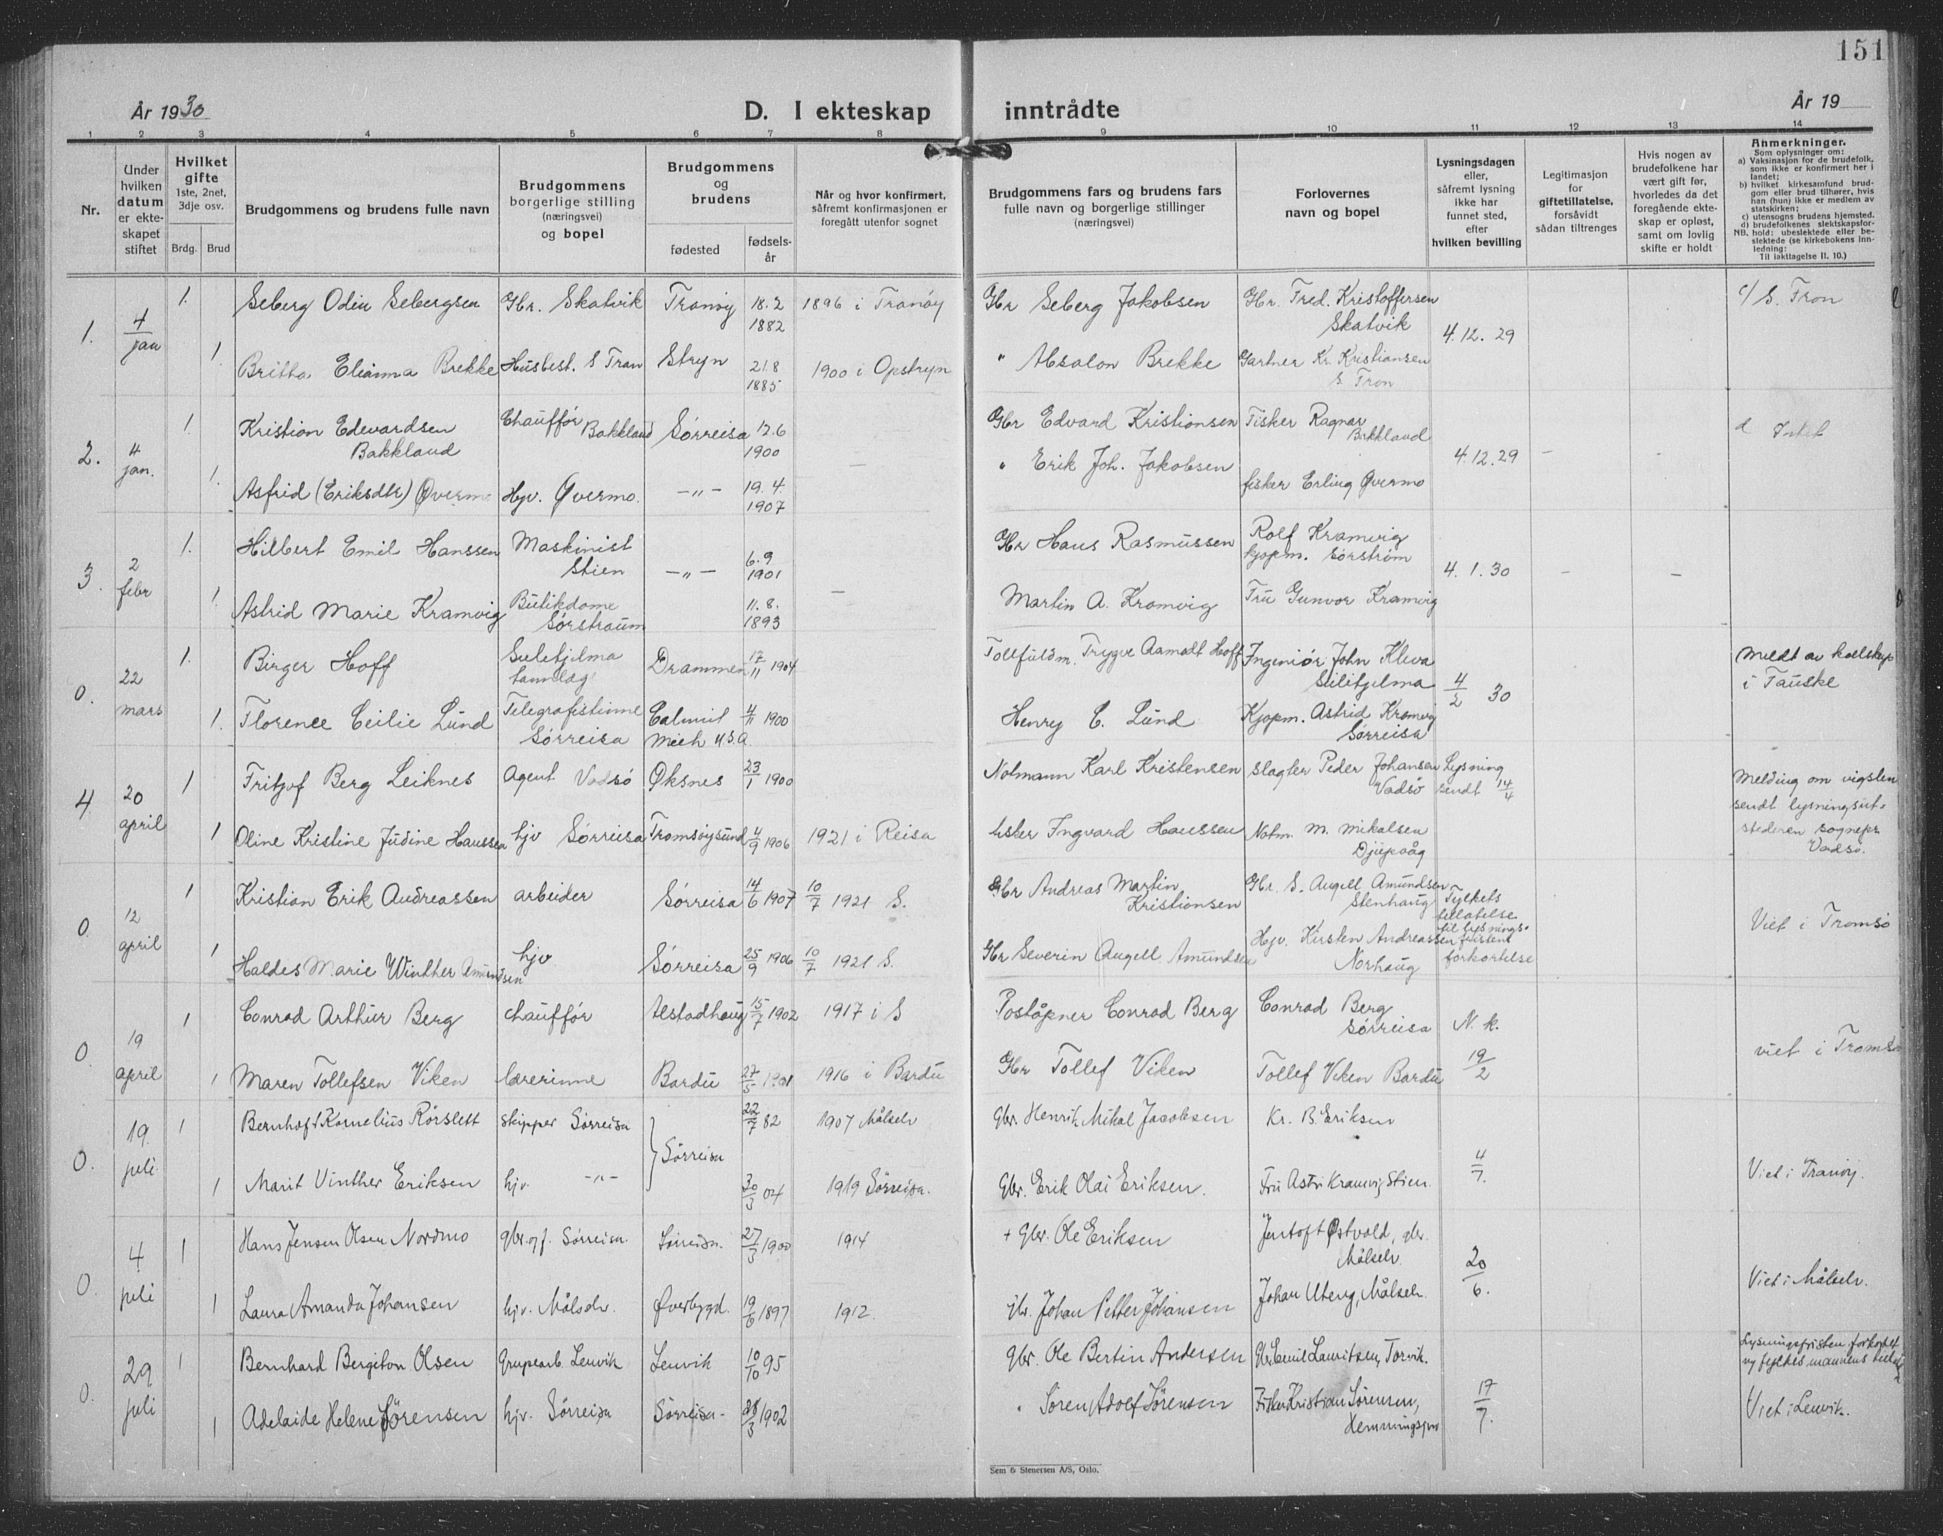 151
År 1930
D. I ekteskap inntrådte
År 19
1 2 3 4 5 6 7 8 9 10 11 12 13 14
Nr.
Under hvilken datum er ekteskapet stiftet
Hvilket gifte 1ste, 2net, 3dje osv.
Brdg. Brud
Brudgommens og brudens fulle navn
Brudgommens borgerlige stilling (næringsvei) og bopel
Brudgommens og brudens
fødested
fødselsår
Når og hvor konfirmert, såfremt konfirmasjonen er foregått utenfor sognet
Brudgommens fars og brudens fars fulle navn og borgerlige stillinger (næringsvei)
Forlovernes navn og bopel
Lysningsdagen eller, såfremt lysning ikke har funnet sted, efter hvilken bevilling
Legitimasjon for giftetillatelse, forsåvidt sådan tiltrenges
Hvis nogen av brudefolkene har vært gift før, hvorledes da det foregående ekteskap er opløst, samt om lovlig skifte er holdt
Anmerkninger.
Som oplysninger om:
a) Vaksinasjon for de brudefolk, som ikke er konfirmert her i landet;
b) hvilket kirkesamfund brudgom eller brud tilhører, hvis han (hun) ikke er medlem av statskirken;
c) utensogns brudens hjemsted.
d) brudefolkenes slektskapsforhold: ubeslektede eller beslektede (se kirkebokens innledning:
NB. Til iakttagelse II. 10.)
1. 4 jan 1. Seberg Odin Sebergsen Gbr. Skatvik Tranøy 18.2 1882 1896 i Tranøy Gbr Seberg Jakobsen Gbr. Fred. Kristoffersen Skatvik 4.12.29 c/ S. Tron
1 Britta Elianna Brekke Husbest. S Tran Stryn 21.8 1885 1900 i Opstryn " Absalon Brekke Gartner Kr. Kristiansen S. Tron
2. 4 jan. 1 Kristian Edevardsen Bakkland Chauffør Bakkland Sørreisa 12.6 1900 Gbr Edvard Kristiansen Fisker Ragnar Bakkland 4.12.29 - d
1. Asfrid (Eriksdtr) Øvermo Hjv. Øvermo. -„- 19.4. 1907 " Erik Joh. Jakobsen fisker Erling Øvermo
3. 2 febr 1. Hilbert Emil Hanssen Maskinist Stien -„- 6.9 1901 Gbr Hans Rasmussen Rolf Kramvig kjøpm. Sørstrøm 4.1.30 - -
1. Astrid Marie Kramvig Butikdame Sørstraum 11.8. 1893 Martin A. Kramvig Fru Gunvor Kramvig
0. 22 mars 1. Birger Hoff Sulitjelma tannlæg Drammen 17/11 1904 Tollfuldm. Trygve Aamodt Hoff Ingeniør John Kleva Sulitjelma 4/2 30 Meldt av i Fauske
1. Florence Ceilie Lund Telegrafistinne Sørreisa Calumit Mich U.S.A. 4/11 1900 Henry C. Lund Kjøpm. Astrid Kramvig Sørreisa
4. 20 april 1 Fritjof Berg Leiknes Agent Vadsø Øksnes 23/1 1900 Notmann Karl Kristensen Slagter Peder Johansen Vadsø Lysning sendt 14/4 Melding om vigslen sendt lysningsutstederen sognepr Vadsø.
1 Oline Kristine Judine Hanssen hjv Sørreisa Tromsøysund 4/9 1906 1921 i Reisa fisker Ingvard Hanssen Notm. M. Mikalsen Djupvåg
0. 12 april 1 Kristian Erik Andreassen arbeider Sørreisa 14/6 1907 10/7 1921 S. Gbr Andreas Martin Kristiansen Gbr. S. Angell Amundsen Stenhaug Fylkets tillatelse til lysningsfristens forkortelse Viet i Tromsø
1 Haldis Marie Winther Amundsen hjv. Sørreisa 25/9 1906 10/7 1921 S. Gbr Severin Angell Amundsen Hjv. Kirsten Andreassen Norhaug
0. 19 april 1 Conrad Arthur Berg chauffør Alstadhaug 15/7 1902 1917 i S Poståpner Conrad Berg Conrad Berg Sørreisa N.k. 19/2 viet i Tromsø
1 Maren Tollefsen Viken lærerinne Bardu 27/5 1901 1916 i Bardu Gbr Tollef Viken Tollef Viken Bardu
0. 19. juli 1 Bernhoft Kornelius Rørslett skipper Sørreisa Sørreisa 22/7 82 1907 Målselv gbr. Henrik Mikal Jacobsen Kr. B. Eriksen 4/7. Viet i Tranøy.
1 Marit Vinther Eriksen hjv. -„- 30/3 04 1919 Sørreisa. gbr. Erik Olai Eriksen. Fru Astri Kramvig Stien
0. 4 juli 1 Hans Jensen Olsen Nordmo gbr. og f. Sørreisa Sørreisa. 27/3 1900 1914 + gbr. Ole Eriksen Jentoft Østvold, gbr. Målselv. 20/6. Viet i Målselv.
1 Laura Amanda Johansen hjv. Målselv. Øverbygd. 19/6 1897 1912. gbr. Johan Petter Johansen Johan Uteng, Målselv.
0. 29 juli 1 Bernhard Bergiton Olsen Grupearb. Lenvik Lenvik 10/10 95 gbr. Ole Bertin Andersen Gbr. Emil Lauritsen, Torvik. 17/7. Lysningsfristen forkortet ny fylkesmannens Viet i Lenvik.
1 Adelaide Helene Sörensen hjv. Sørreisa Sørreisa. 28/3 1902 " Søren Adolf Sørensen Fisker Kristian Sørensen, Hemmingsjord
Sem & Stenersen A/S, Oslo.